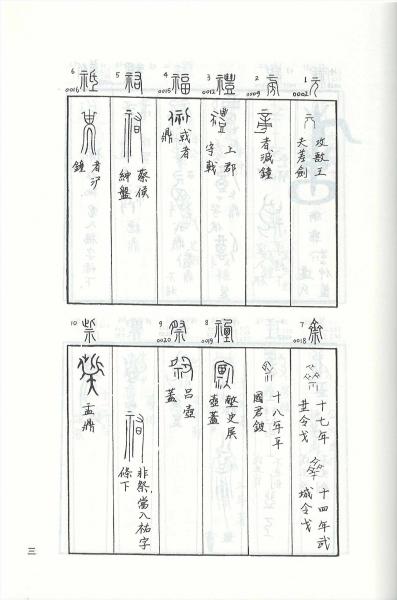 1 元 0002
攻敔王
夫差劍
2 帝 0009
者減鐘
3 禮 0012
上郡
守戟
4 福 0015
或者
鼎
5 祐
蔡侯
紳盤
6 祗 0016
者沪
鐘
7 齋 0018
十七年
令戈
十四年武
城令戈
十八年平
國君鈹
8 禋 0019
史展
壺蓋
9 祭 0020
呂壺
蓋
非祭,當入祐字
條下
10 祡
盂鼎
三